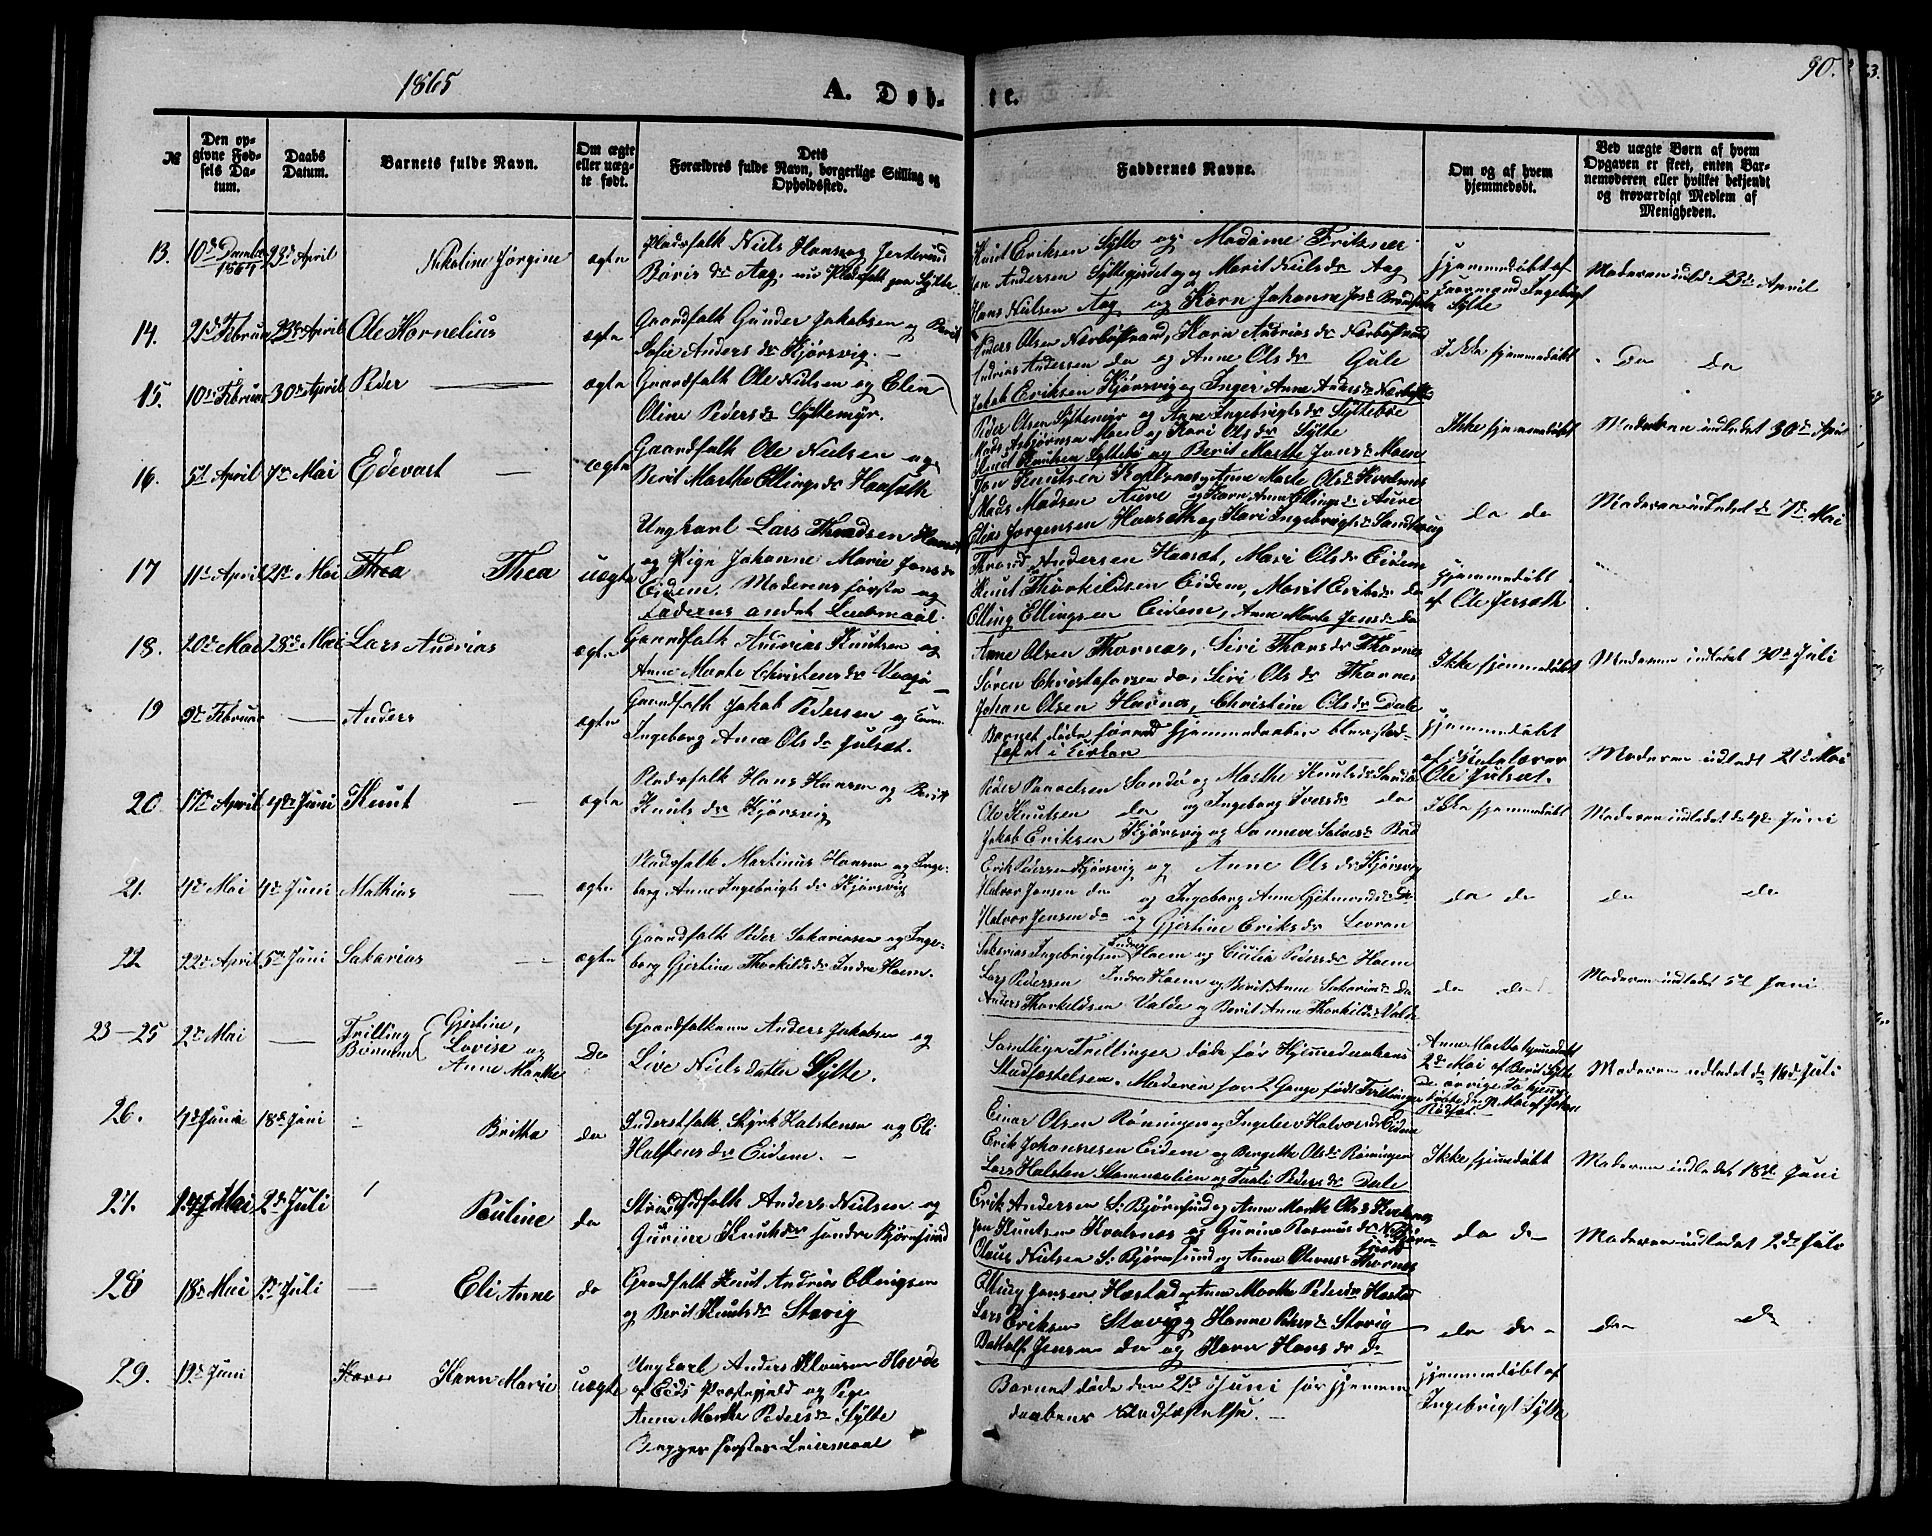 1865
A. Døb-
te.
90.
No
Den op-
givne Fød-
sels Da-
tum.
Daabs
Datum.
Barnets fulde Navn.
Om ægte
eller uæg-
te født.
Dets
Forældres fulde Navn, borgerlige Stilling og
Opholdssted.
Faddernes Navne.
Om og af hvem
hjemmedøbt.
Ved uægte Børn af hvem
Opgaven er skeet, enten Bar-
nemoderen eller hvilket bekjendt
og troværdigt Medlem af
Menigheden.
13.
23de April
Nikoline Jørgine
ægte
Pladsfolk Niels Hansen
Knut Eriksen Sylte og Madame Fritzner
Jon Andersen Syltegjerdet og Marit Nielsdr Aag
Hans Nielsen Aag og Karn Johanne
hjemmedøbt af
Jordmoder Ingeborg
Sylte
Moderen indl. 23de April
14.
21de Februar
23de April
Ole Kornelius
ægte
Gaardfolk Gunder Jakobsen og Berit
Sofie Andersdr Kjørsvig.
Anders Olsen Nærbøstrand, Karn Andriasdr Nærbøstrand
Andrias Andersen do og Anne Olsdr Gule
Jakob Eriksen Kjørsvig og Inger Anne Andersdr
Ikke hjemmedøbt
Do do
15.
10de Februar
30de April
Peder
ægte
Gaardfolk Ole Nielsen og Elen
Oline Pedersdr Syltemyr.
Peder Olsen Syltemyr og Anne Ingebrigtsdr Syltebøe
Mads Asbjørnsen Moen og Kari Olsdr Sylte
Knut Knutsen Syltebø og Berit Marthe Jonsdr Moen
Ikke hjemmedøbt
Moderen indledet 30te April
16.
5te April
7de Mai
Edevart
ægte
Gaardfolk Ole Nielsen og
Berit Marthe Ellingsdr Haasæth
Jon Knutsen Kvalsnes og Anne Marte Olsdr Kvalsnes
Mads Madsen Aure og Karn Anne Ellingsdr Aure
Elias Jørgensen Haasæth og Kari Ingebrigtsdr Sandvig
do do
Moderen indledet d 7de Mai
17
11te April
21de Mai
Thea
Thea
uægte
Ungkarl Lars Throndsen Haasæt
og Pige Johanne Marie Jensdr
Eidem. Moderens første og
Faderens andet Leiermaal.
Thrond Andersen Haasæt, Mari Olsdr Eidem
Knut Thorkildsen Eidem, Marit Eriksdr do
Elling Ellingsen Eidem, Anne Marte Jensdr do
hjemmedøbt
af Ole Jersæth
18.
20de Mai
28de Mai
Lars Andrias
ægte
Gaardfolk Andrias Knutsen og
Anne Marte Christensdr Vaagø
Arne Olsen Thornes, Siri Thorsdr Thornes
Søren Christofersen do, Siri Olsdr Thornes
Johan Olsen Havnes, Christine Olsdr Dale
Ikke hjemmedøbt
Moderen indledet 30te Juli
19
9de Februar
Anders
ægte
Gaardfolk Jakob Pedersen og
Ingeborg Anna Olsdr Julset.
Barnet døde førend Hjemmedaaben blev stad-
fæstet i Kirken
hjemmedøbt
af Skolelærer
Ole Julset.
Moderen indledt 21de Mai
20.
17de April
4de Juni
Knut
ægte
Pladsfolk Hans Hansen og Berit
Knutsdr Kjørsvig
Peder Paulsen Sandø og Marthe Knutsdr Sandø
Ole Knutsen do og Ingeborg Iversdr do
Jakob Eriksen Kjørsvig og
Ikke hjemmedøbt
Moderen indledet de 4de Juni
21.
4de Mai
4de Juni
Mathias
ægte
Pladsfolk Martinus Hansen og Inge-
borg Anne Ingebrigtsdr Kjørsvig
Erik Pedersen Kjørsvig og Anne Olsdr Kjørsvig
Halvor Jensen do og Ingeborg Anne Gjetmundsdr do
Halvor Jensen do og Gjertine Eriksdr Levran
do do
do do
22
22de April
5te Juni
Sakarias
ægte
Gaardfolk Peder Sakariasen og Inge-
borg Gjertine Thorkildsdr Indre Haem.
Sakarias Ingebrigtsen Indre Haem og Cicilia Pedersdr Haem
Lars Pedersen Indre Haem og Berit Anne Sakariasdr do
Anders Thorkildsen Valde og Berit Anne Thorkildsdr Valde
do do
Moderen indledet 5te Juni
23-25
2de Mai
Trilling
Børnene
Gjertine,
Lovise og
Anne Marthe
Do
Gaardfolkene Anders Jakobsen og
Live Nielsdatter Sylte.
Samtlige Trillinger døde før Hjemmedaabens
Stadfæstelsen. Moderen har 2 Gange født Trillinger
Anne Marthe hjemmedøbt
2de Mai af Berit Sylte
Moderen indledet d 18de Juli
26.
4de Juni
18de Juni
Britha
do
Inderstfolk Styrk Halstensen og Eli
Halstensdr Eidem.
Einar Olsen Røningen og Ingeborg Halvorsdr Eidem
Erik Johannesen Eidem og Bergitte Olsdr Røningen
Lars Halsten Stomnælien og Pedersdr Dale
Ikke hjemmedøbt
Moderen indledet 18de Juni
27.
Mai
2de Juli
Pauline
do
Strandsidfolk Anders Nielsen og
Gurine Knutsdr søndre Bjørnsund
Erik Andersen S. Bjørnsund og Anne Marthe Olsdr Kvalsnes
Jon Knutsen Kvalsnes og Gurine Rasmusdr N. Bjørn-
sund
Olaus Nielsen S. Bjørnsund og Anne Olsdr Thornes
do do
Moderen indledet 2de Juli
28
18de Mai
2de Juli
Eli Anne
do
Gaardfolk Knut Andrias Ellingsen
og Berit Knutsdr Stavig
Elling Jensen Hastad og Anne Marthe Pedersdr Hastad
Lars Eriksen Stavig og Hanne Stavig
Jensen do og Karn Hansdr do
do do
do do
29.
19de Juni
Karn
Karn Marie
uægte
Ungkarl Anders Klausen Hovde
af Eids Præstegjeld og Pige
Anne Marthe Pedersdr Sylte
Begges første Leiermaal
Barnet døde den 21de Juni før Hjemme-
daabens Stadfæstelse.
hjemmedøbt af
Ingebrigt Sylte